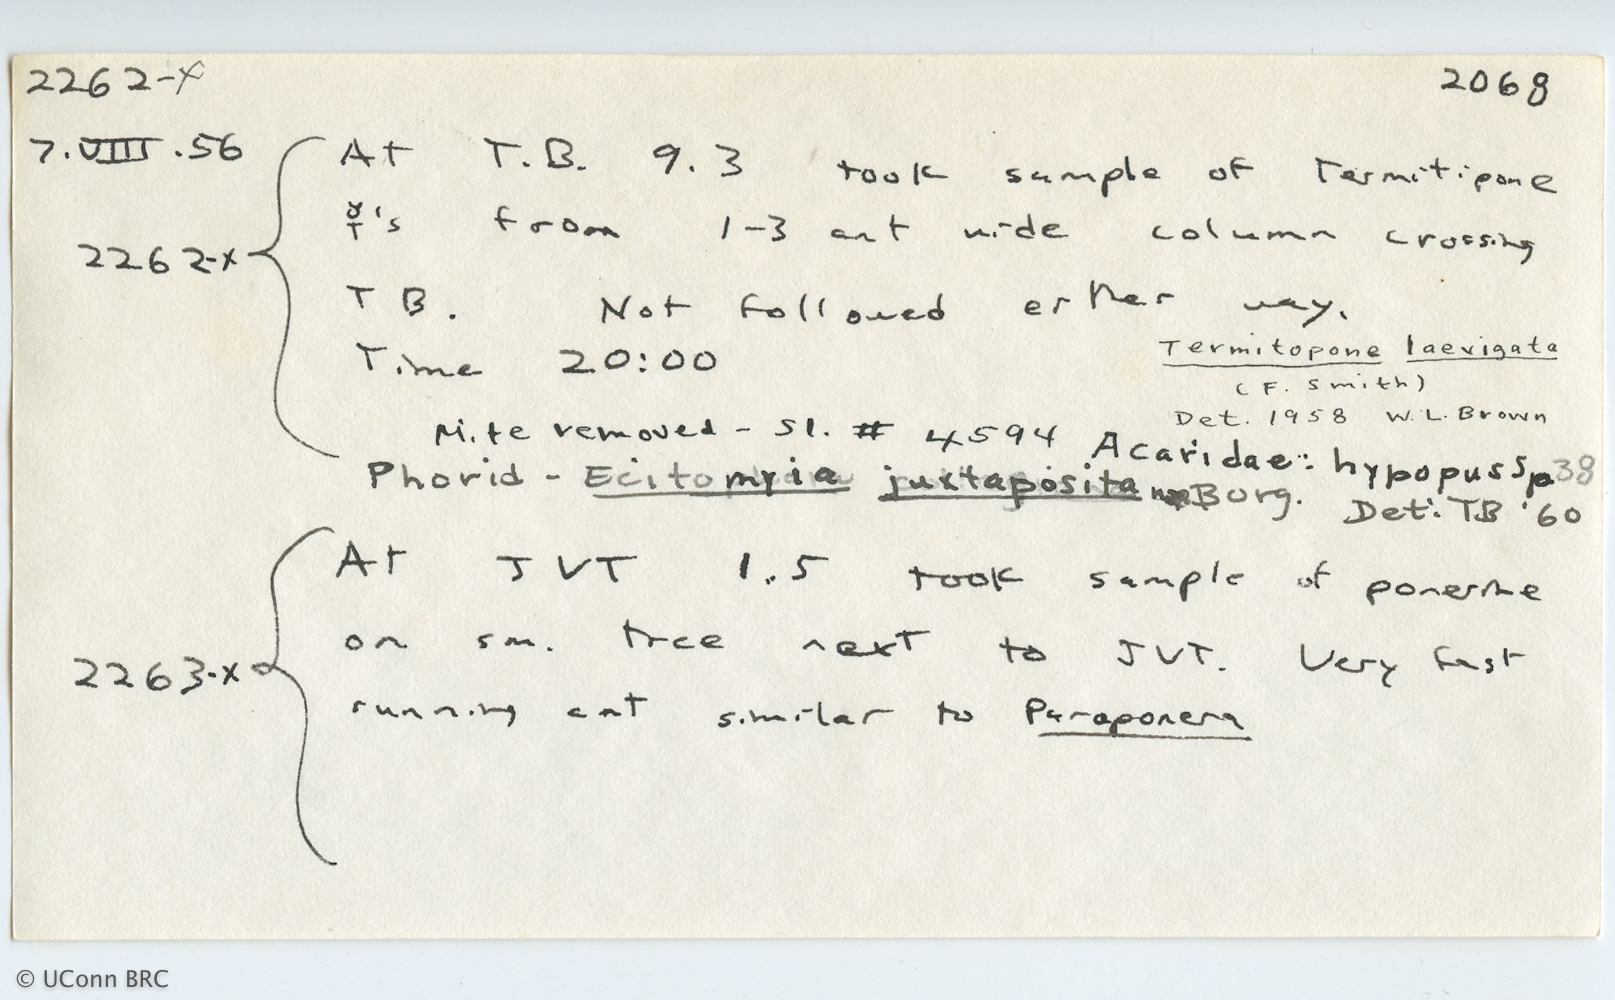 2262-x 2068
7.VIII.56 At T.B. 9.3 took sample of Termitipone
☿'s from 1-3 ant wide column crossing
2262-x
T B. Not followed either way.
Time 20:00
Termitopone laevigata
(F. Smith)
Det. 1958 W.L. Brown
Mite removed - Sl. # 4594 Acaridae: hypopus sp 38
Phorid - Ecitomyia juxtaposita Borg. Det: TB '60
At JVT 1.5 took sample of ponerine
on sm. tree next to JVT. Very fast
2263-x
running ant similar to Paraponera
© UConn BRC